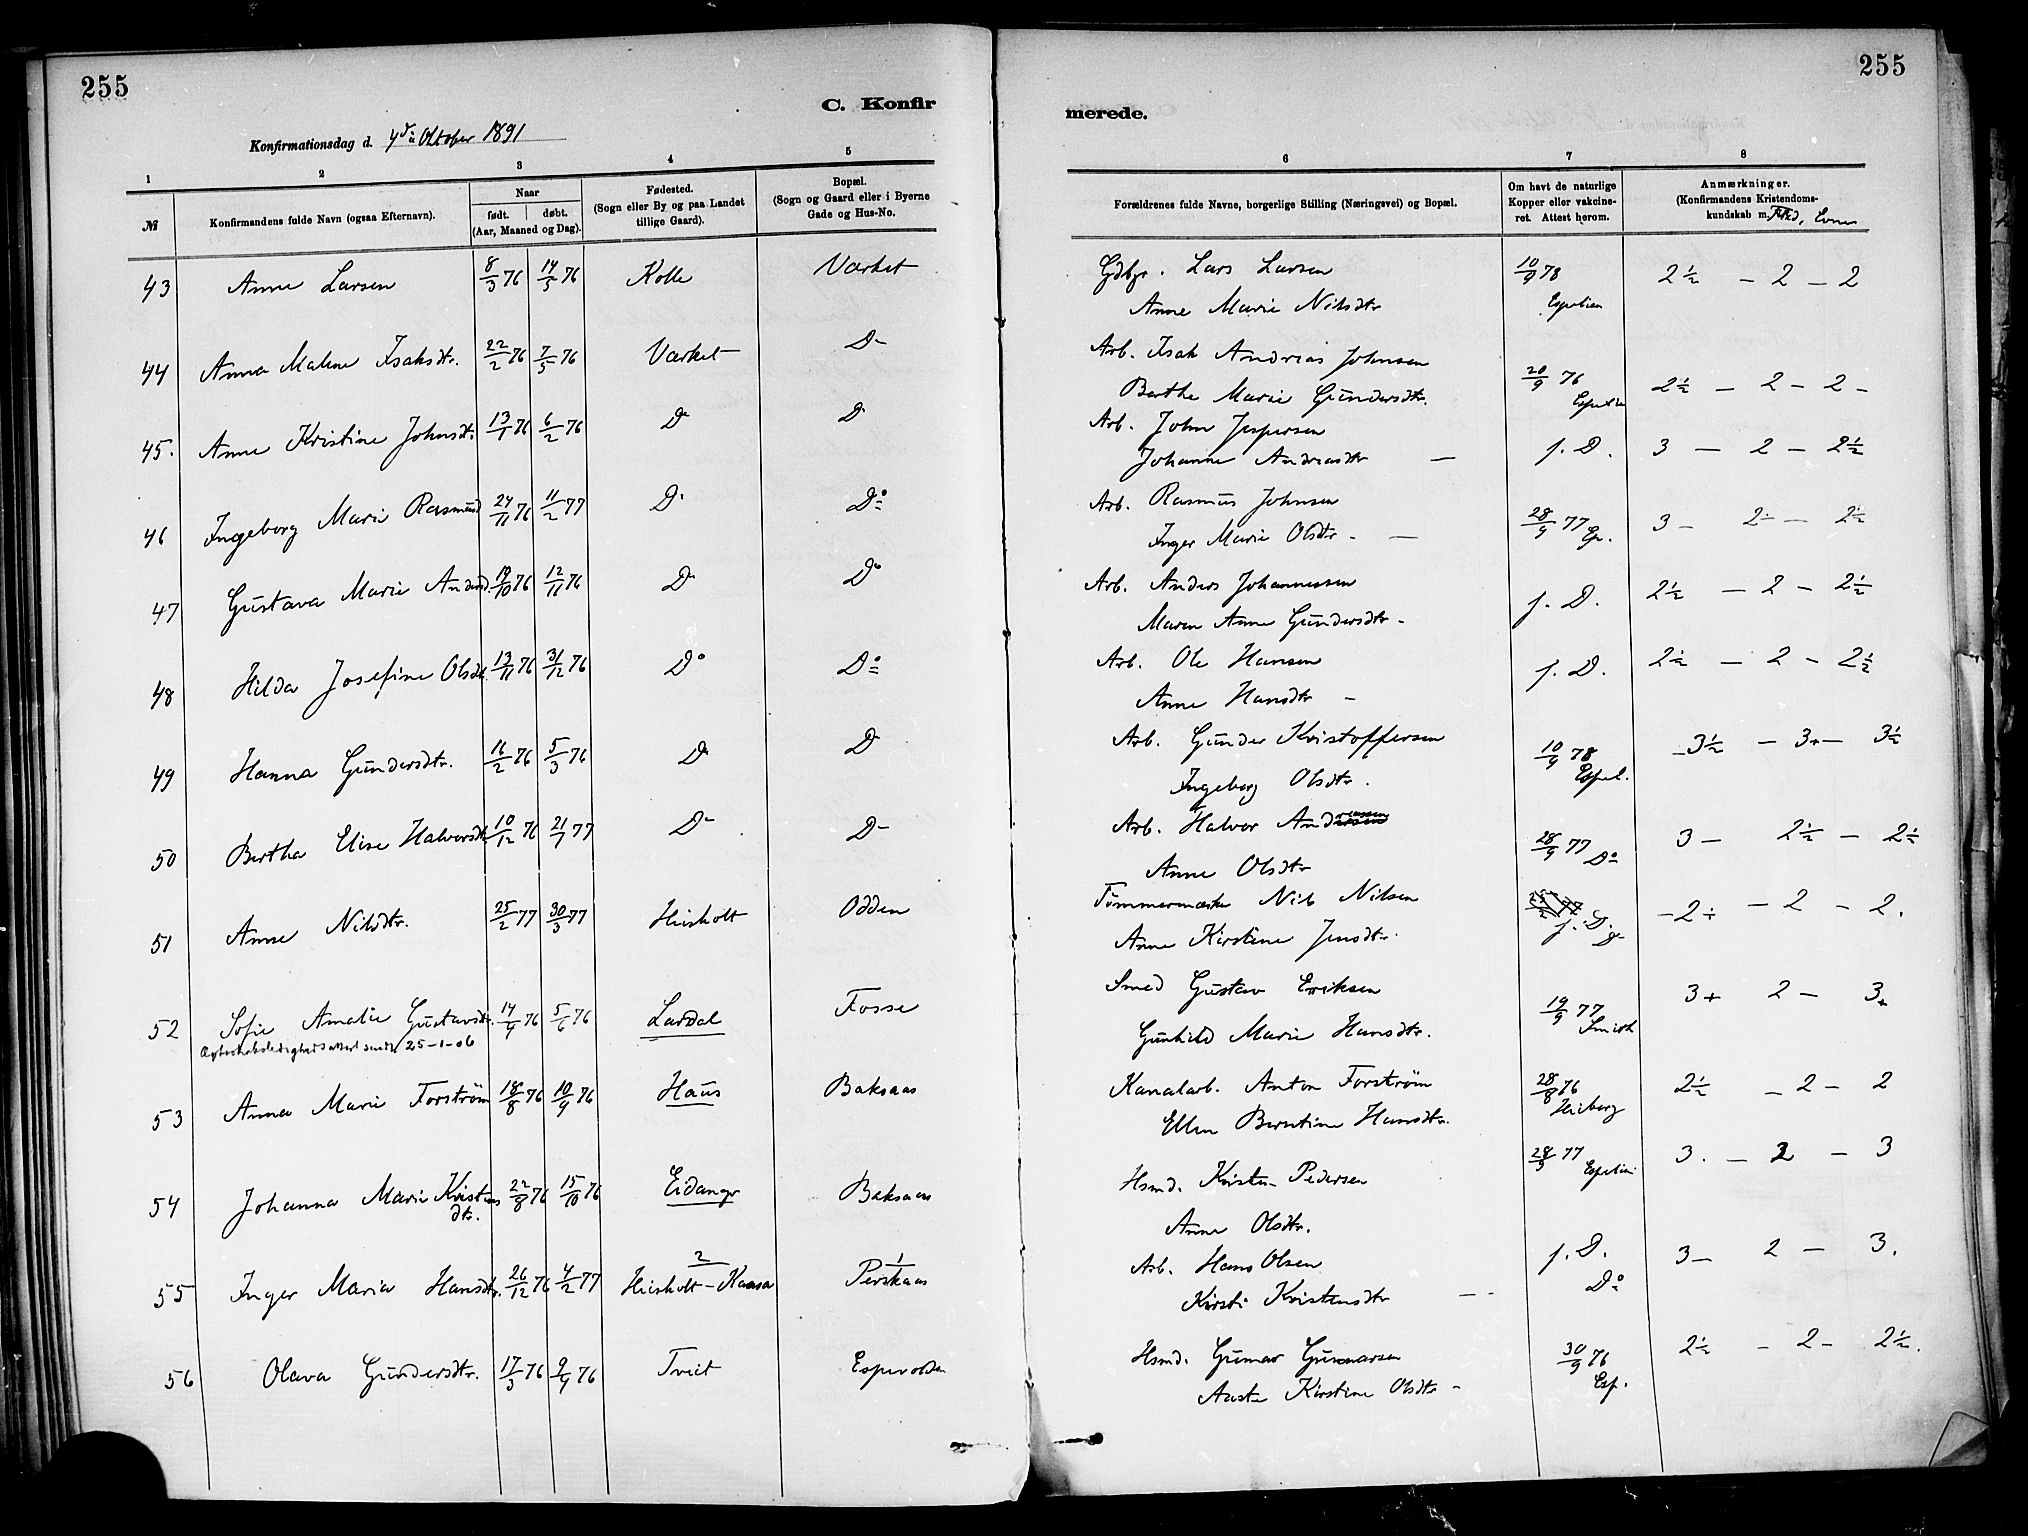 255
255
C. Konfir
merede.
Konfirmationsdag d. 4de Oktober 1891
1 2 3 4 5 6 7 8
№
Konfirmandens fulde Navn (ogsaa Efternavn).
Naar
født. døbt.
(Aar, Maaned og Dag).
Fødested.
(Sogn eller By og paa Landet
tillige Gaard).
Bopæl.
(Sogn og Gaard eller i Byerne
Gade og Hus-No.
Forældrenes fulde Navne, borgerlige Stilling (Næringsvei) og Bopæl.
Om havt de naturlige
Kopper eller vakcine-
ret. Attest herom.
Anmærkninger.
(Konfirmandens Kristendoms-
kundskab m. Flid, Evner
43 Anne Larsen 8/3 76 14/5 76 Kolle Værket Gdbr. Lars Larsen 10/9 78 2½ – 2 – 2
Anne Marie Nilsdtr Espelien
44 Anna Malene Isaksdtr. 22/2 76 7/5 76 Værket D- Arb. Isak Andreas Johnsen
Berthe Marie Gundersdtr. 20/9 76 2½ – 2 – 2 –
45. Anne Kristine Johnsdtr. 13/1 76 6/2 76 D D Arb. John Jespersen
Johanne Andreasdtr – f. D. 3 – 2 – 2½
46 Ingeborg Marie Rasmusd 24/11 76 11/2 77 D. Do Arb. Rasmus Johnsen
Inger Marie Olsdtr – 28/9 77 Esp. 3 – 2÷ – 2½
47 Gustava Marie Andersd. 19/10 76 12/11 76 D. Do Arb. Anders Johannessen
Maren Anne Gundersdtr – f. D. 2½ – 2 – 2½
48 Hilda Josefine Olsdtr. 13/11 76 31/12 76 Do Do Arb. Ole Hansen
Anne Hansdtr – f. D. 2½ – 2 – 2½
49 Hanna Gundersdtr. 16/2 76 5/3 76 D D Arb. Gunder Kristoffersen
Ingeborg Olsdtr. 10/9 78 Espel. 3½ – 3+ – 3½
50 Bertha Elise Halvorsdtr. 10/12 76 21/1 77 D- D- Arb. Halvor Andreassen
Anne Olsdtr 28/9 77 Do 3 – 2½ – 2½
51 Anne Nilsdtr. 25/2 77 30/3 77 Heisholt Odden Tømmermester Nils Nilsen
Anne Kirstine Jensdtr. f. D. – 2÷ – 2 – 2.
52 Sofie Amalie Gustavsdtr. 14/4 76 5/6 76 Lardal Fosse Smed Gustav Eriksen
Ægteskabsledighedsattest sendt 25-1-06
Gunhild Marie Hansdtr. 19/9 77 Smith 3+ 2 – 3+
53 Anna Marie Forstrøm 18/8 76 10/9 76 Haus Baksaas Kanalarb. Anton Forstrøm
Ellen Berntine Hansdtr. 28/8 76 Heiberg 2½ – 2 – 2
54 Johanna Marie Kristens
dtr. 22/8 76 15/10 76 Eidangr Baksaas Hsmd. Kristen Pedersen
Anne Olsdtr. 28/9 77 Espelien 3. – 2 – 3
55 Inger Maria Hansdtr. 26/12 76 4/2 77 Heisholt – Kaasa Perskaas Arb. Hans Olsen
Kirsti Kristensdtr f. D. Do 3 – 2 – 3.
56 Olava Gundersdtr. 17/3 76 9/4 76 Tveit Espevolden Hsmd. Gunnar Gunnarsen
Aaste Kirstine Olsdtr – 30/9 76 Esp. 2½ – 2 – 2½.